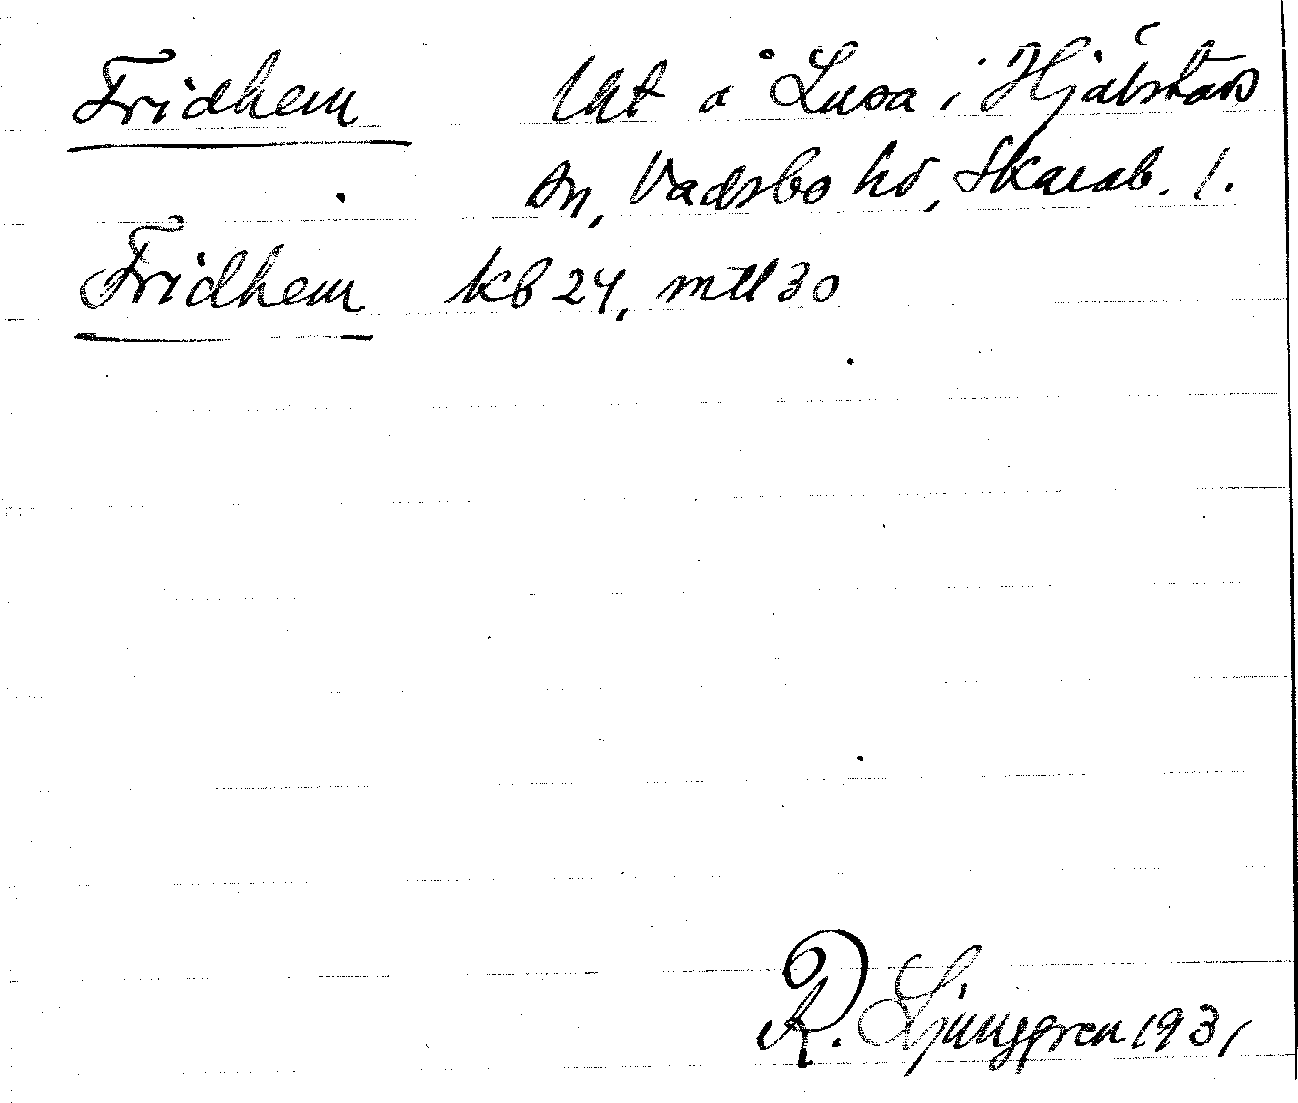 Fridhem Lht å Lusa i Hjälstads
sn, Vadsbo hd, Skarab. l.
Fridhem kb 24, mtl 30
R. Ljunggren 1931